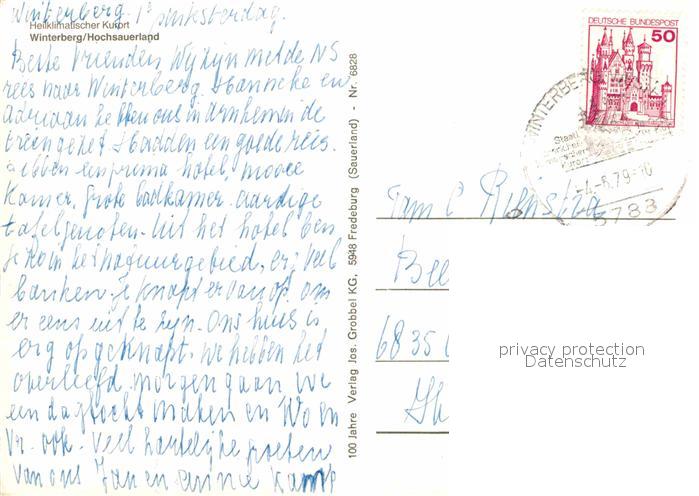 Winterberg. 1e pinksterdag.
Heilklimatischer Kurort
Winterberg/Hochsauerland
Beste vrienden Wij zijn met de NS
reis naar Winterberg. Hanneke en
Adriaan hebben ons in Arnhem in de
trein gezet. Hadden een goede reis.
Hebben een prima hotel, mooie
Kamer, grote badkamer. aardige
tafelgenoten. Uit het hotel ben
je zo in het natuurgebied, er is veel
banken. Je knapt er van op. om
er eens uit te zijn. Ons huis is
erg opgeknapt. We hebben het
overleefd. morgen gaan we
een dagtocht maken en Wo en
Vr. ook. Veel hartelijke groeten
van ons Jan en Kamp
100 Jahre Verlag Jos. Grobbel KG, 5948 Fredeburg (Sauerland) - Nr. 6828
DEUTSCHE BUNDESPOST
50
WINTERBERG
-4.-6.79-10
5788
Fam C Rienstra
Bee
6835
privacy protection
Datenschutz